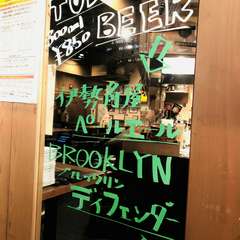 BEER
300ml
¥850
伊勢角屋
ペールエール
BROOKLYN
ブルックリン
ディフェンダー